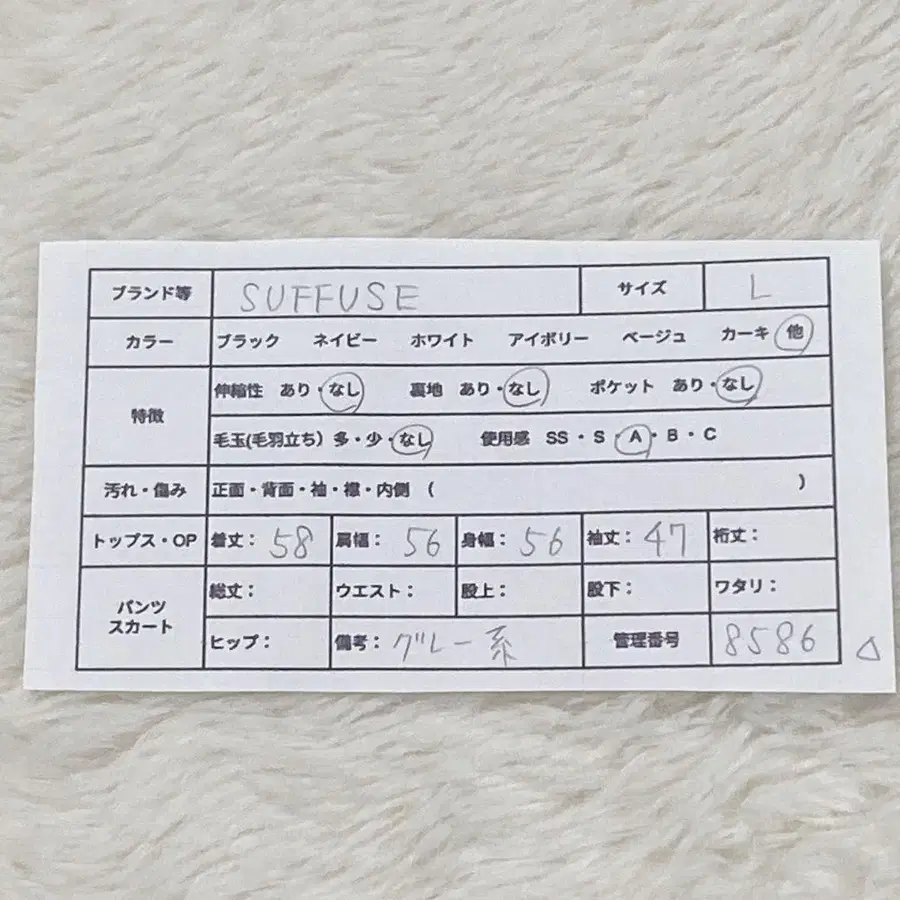 ブランド等 SUFFUSE サイズ L
カラー ブラック ネイビー ホワイト アイボリー ベージュ カーキ 他
特徴 伸縮性 あり・なし 裏地 あり・なし ポケット あり・なし
毛玉(毛羽立ち) 多・少・なし 使用感 SS・S・A・B・C
汚れ・傷み 正面・背面・袖・襟・内側 ( )
トップス・OP 着丈: 58 肩幅: 56 身幅: 56 袖丈: 47 裄丈:
パンツ スカート 総丈: ウエスト: 股上: 股下: ワタリ:
ヒップ: 備考: グレー系 管理番号 8586